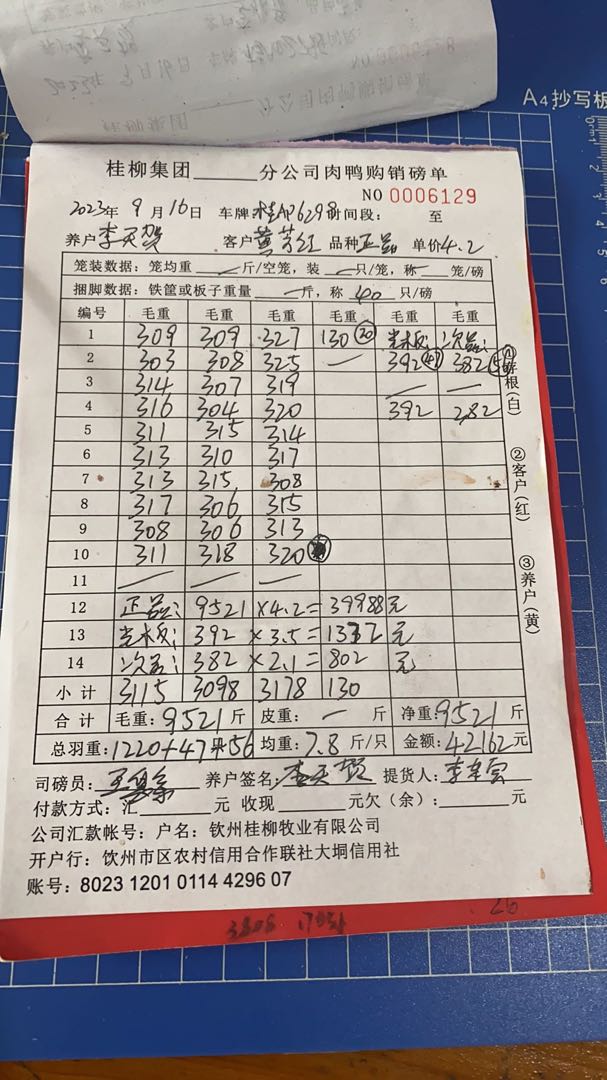 A4抄写板
桂柳集团______分公司肉鸭购销磅单
NO 0006129
2023年 9月16日 车牌 桂AP6298 时间段: 至
养户 李天贺 客户 黄芳红 品种 正品 单价 4.2
笼装数据: 笼均重 — 斤/空笼, 装 — 只/笼, 称 — 笼/磅
捆脚数据: 铁筐或板子重量 — 斤, 称 40 只/磅
编号 毛重 毛重 毛重 毛重 毛重 毛重
1 309 309 327 130 (20) 光板: 次品:
2 303 308 325 — 392 (47) 382 (56)
3 314 307 319 — —
4 316 304 320 392 382
5 311 315 314
6 313 310 317
7 313 315 308
8 317 306 315
9 308 306 313
10 311 318 320
11 — — —
12 正品: 9521 ×4.2= 39988 元
13 光板: 392 ×3.5= 1372 元
14 次品: 382 ×2.1= 802 元
小计 3115 3098 3178 130
合计 毛重: 9521 斤 皮重: — 斤 净重: 9521 斤
总羽重: 1220+47+56 均重: 7.8 斤/只 金额: 42162 元
①存根(白)
②客户(红)
③养户(黄)
司磅员: 养户签名: 李天贺 提货人:
付款方式: 汇______元 收现______元欠(余): ______元
公司汇款帐号: 户名: 钦州桂柳牧业有限公司
开户行: 钦州市区农村信用合作联社大垌信用社
账号: 8023 1201 0114 4296 07